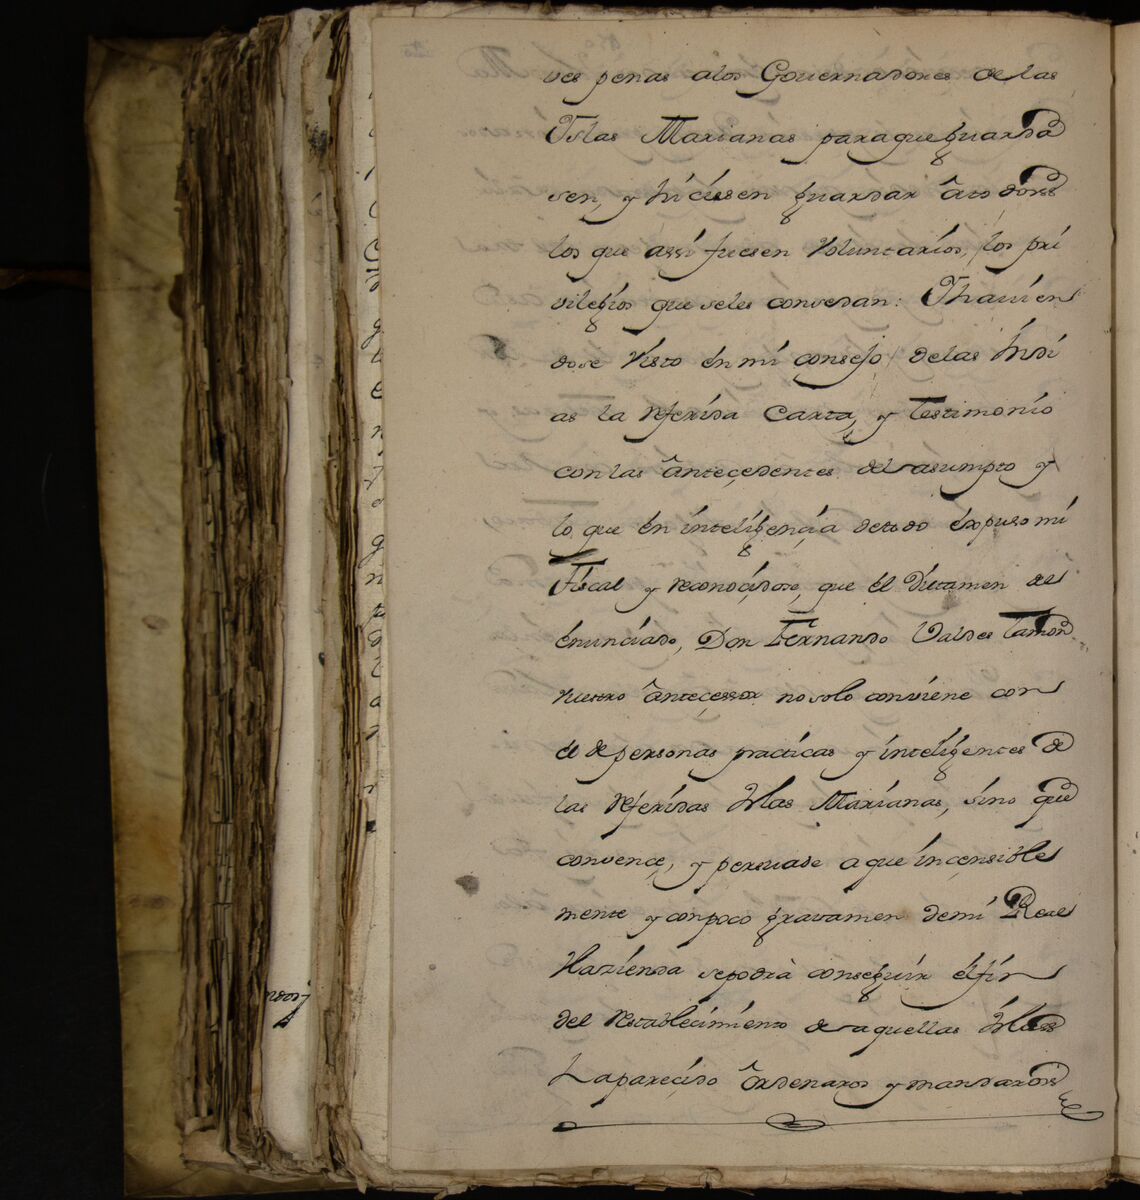 ves penas alos Governadores de las
Yslas Marianas paraque guarda
sen, y hiciesen guardar âtodos
los que assi fuesen Voluntarios, los pri
vilegios que seles consedan: Yhavien
dose visto en mi consejo delas Yndi
as la referida Carta, y testimonio
con las antecedentes del asumpto y
lo que en inteligencia detodo expuso mi
Fiscal y reconocidose, que el Dictamen del
enunciado, Don Fernando Valdes Tamon
vuestro antecessor no solo conviene con
el de personas practicas y inteligentes de
las referidas Yslas Marianas, sino que
convence, y persuade a que incensible
mente y con poco gravamen demi Real
Hazienda sepodrà conseguir el fin
del restablecimiento de aquellas Yslas
Laparecido Ordenaros y mandaros